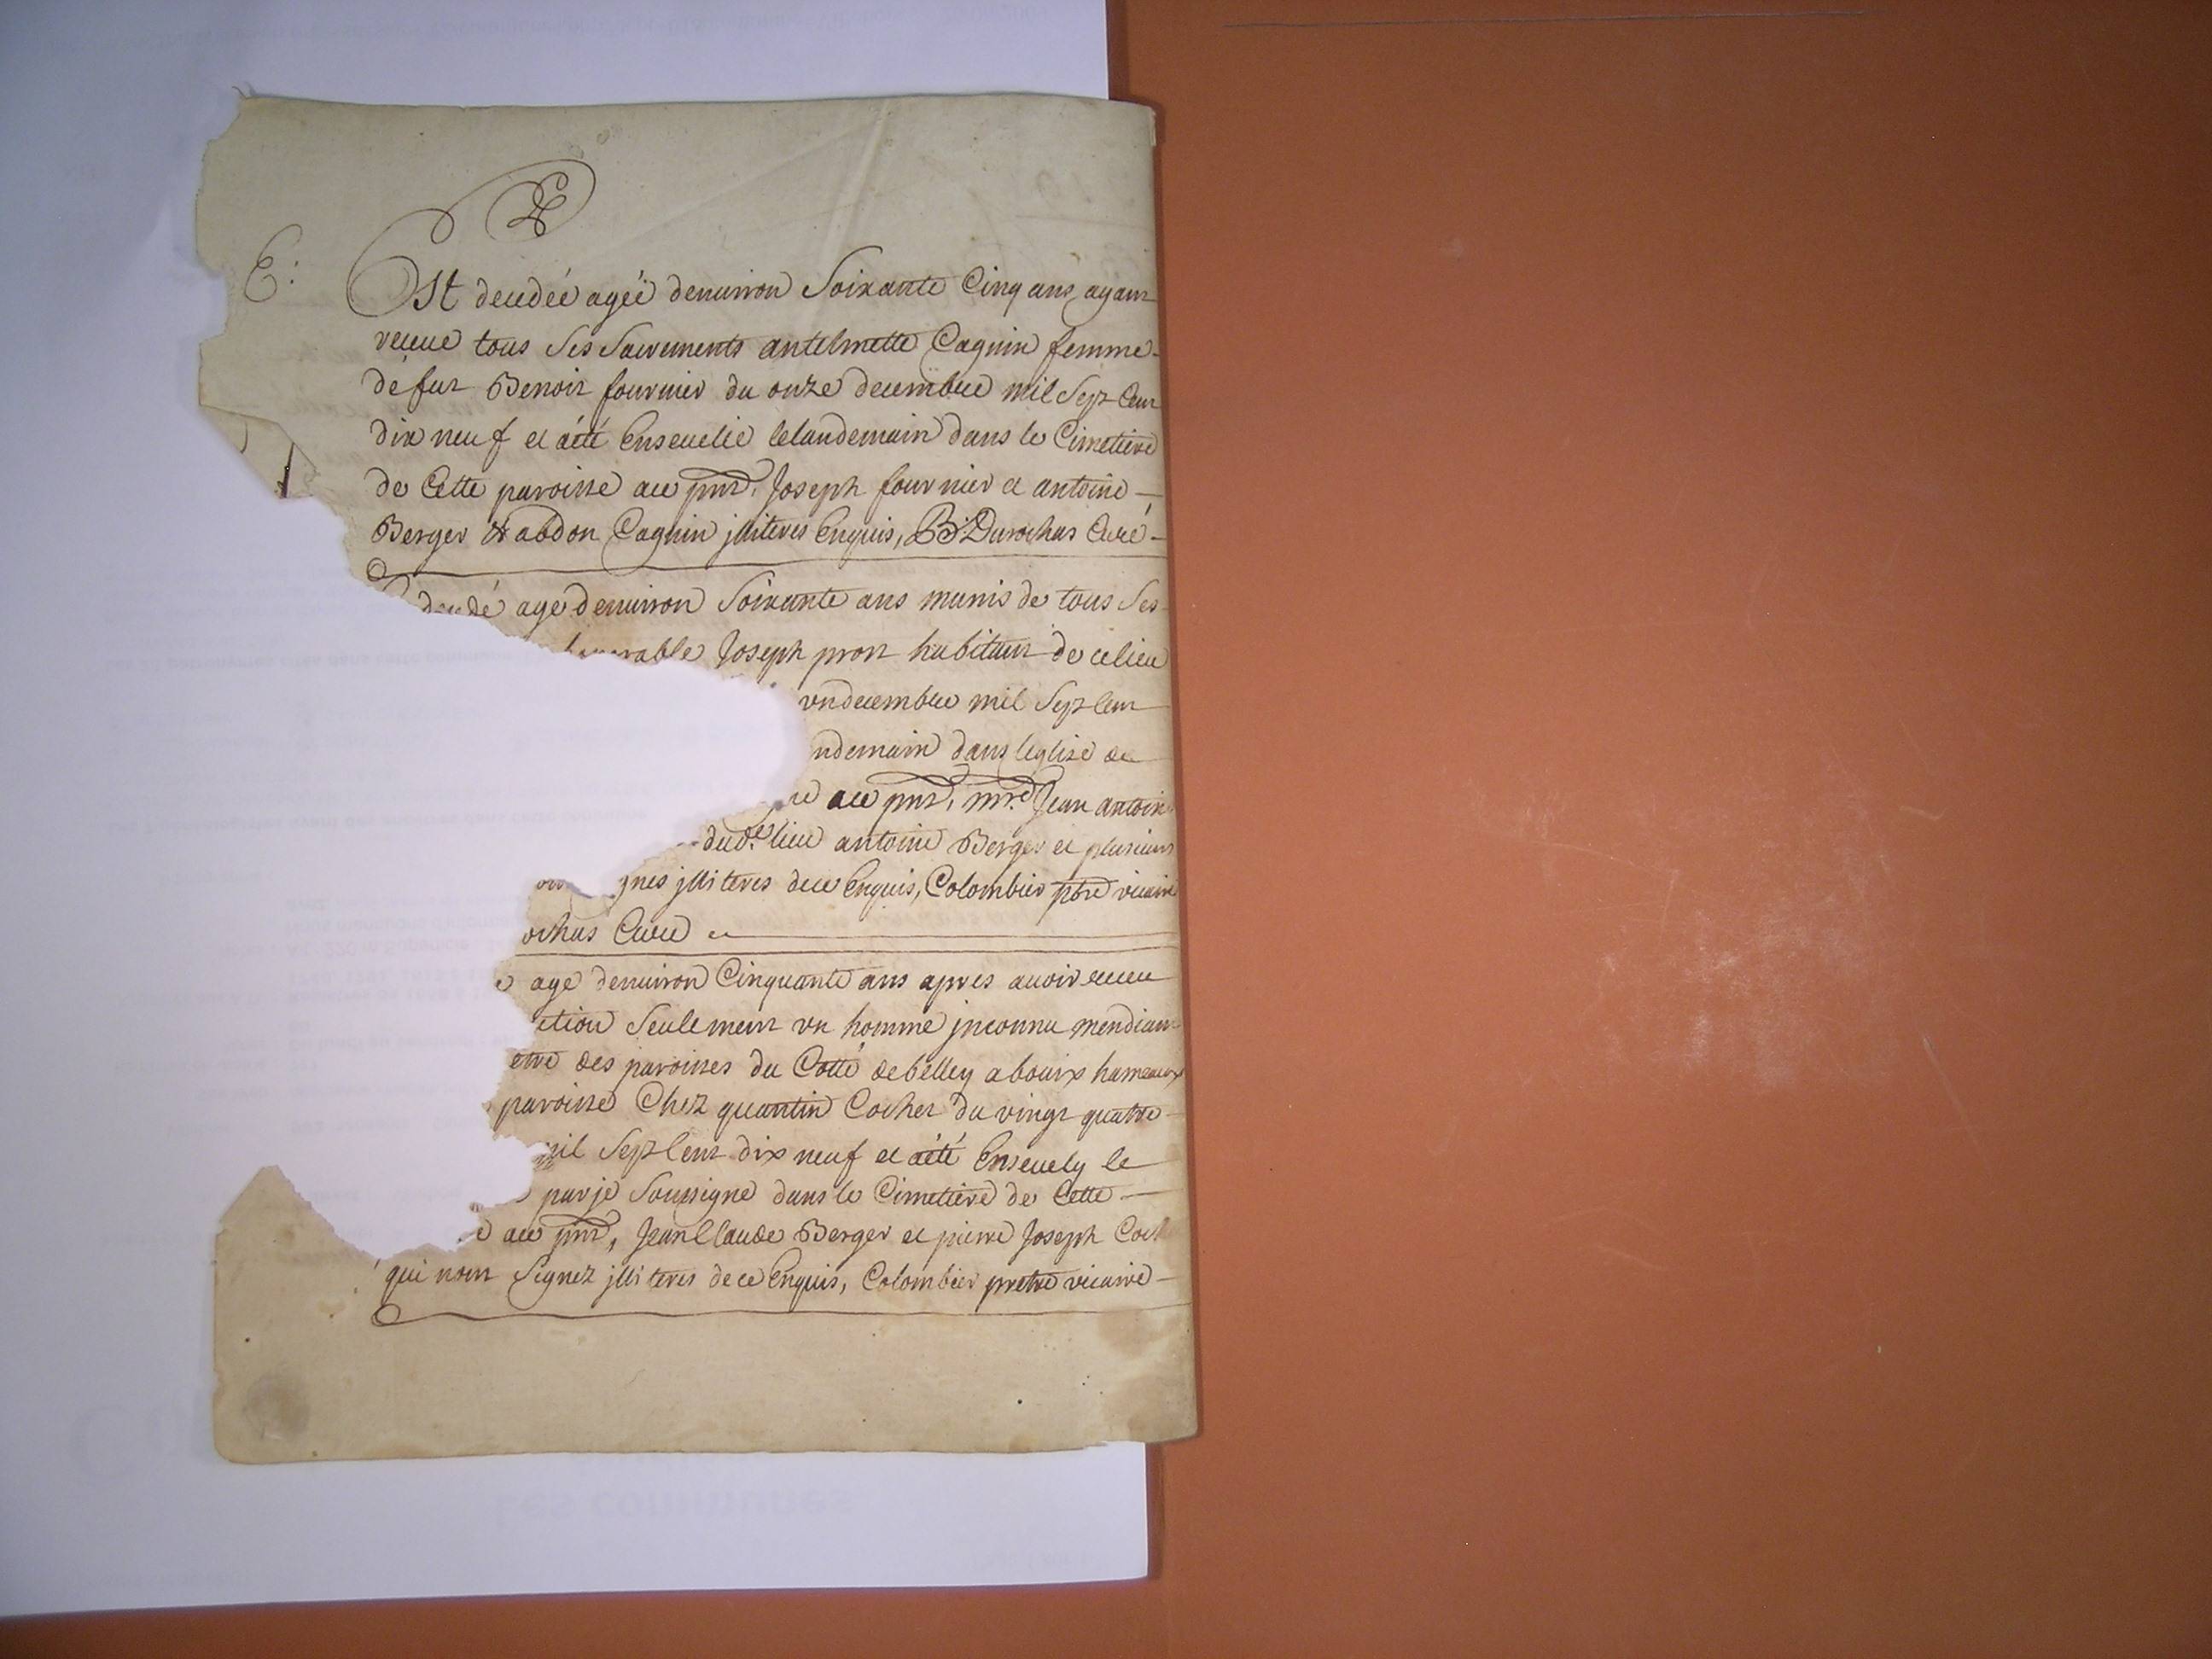 E:
Est decedée ageé denuiron Soixante Cinq ans ayant
receue tous Ses Sacrements antelmette Cagnin femme
de fut Benoit fournier du onze decembre mil Sept Cent
dix neuf et aété Enseuelie lelandemain dans le Cimetiere
de Cette paroisse auec pnts, Joseph fournier et antoine
Berger & abdon Cagnin jlliteres Enquis, B: Durochas Curé
decedé agé denuiron Soixante ans munis de tous Ses
honorable Joseph pront habitant de celieu
vndecembre mil Sept Cent
ndemain dans leglise de
re auec pnts, mre Jean antoin
dud. lieu antoine Berger et plusieurs
gnes jlliteres dece Enquis, Colombier pbre vicaire
ochas Curé
é agé denuiron Cinquante ans apres auoir receu
ction Seulement vn homme jnconnu mendiant
etre des paroisses du Cotté debelley abouix hameaux
paroisse Chez quantin Cochet du vingt quatre
mil Sept Cent dix neuf et aété Enseuely le
par je Soussigné dans le Cimetiere de Cette
e auec pnts, Jean Claude Berger et pierre Joseph Coch
qui nont Signez jlliteres de ce Enquis, Colombier pretre vicaire